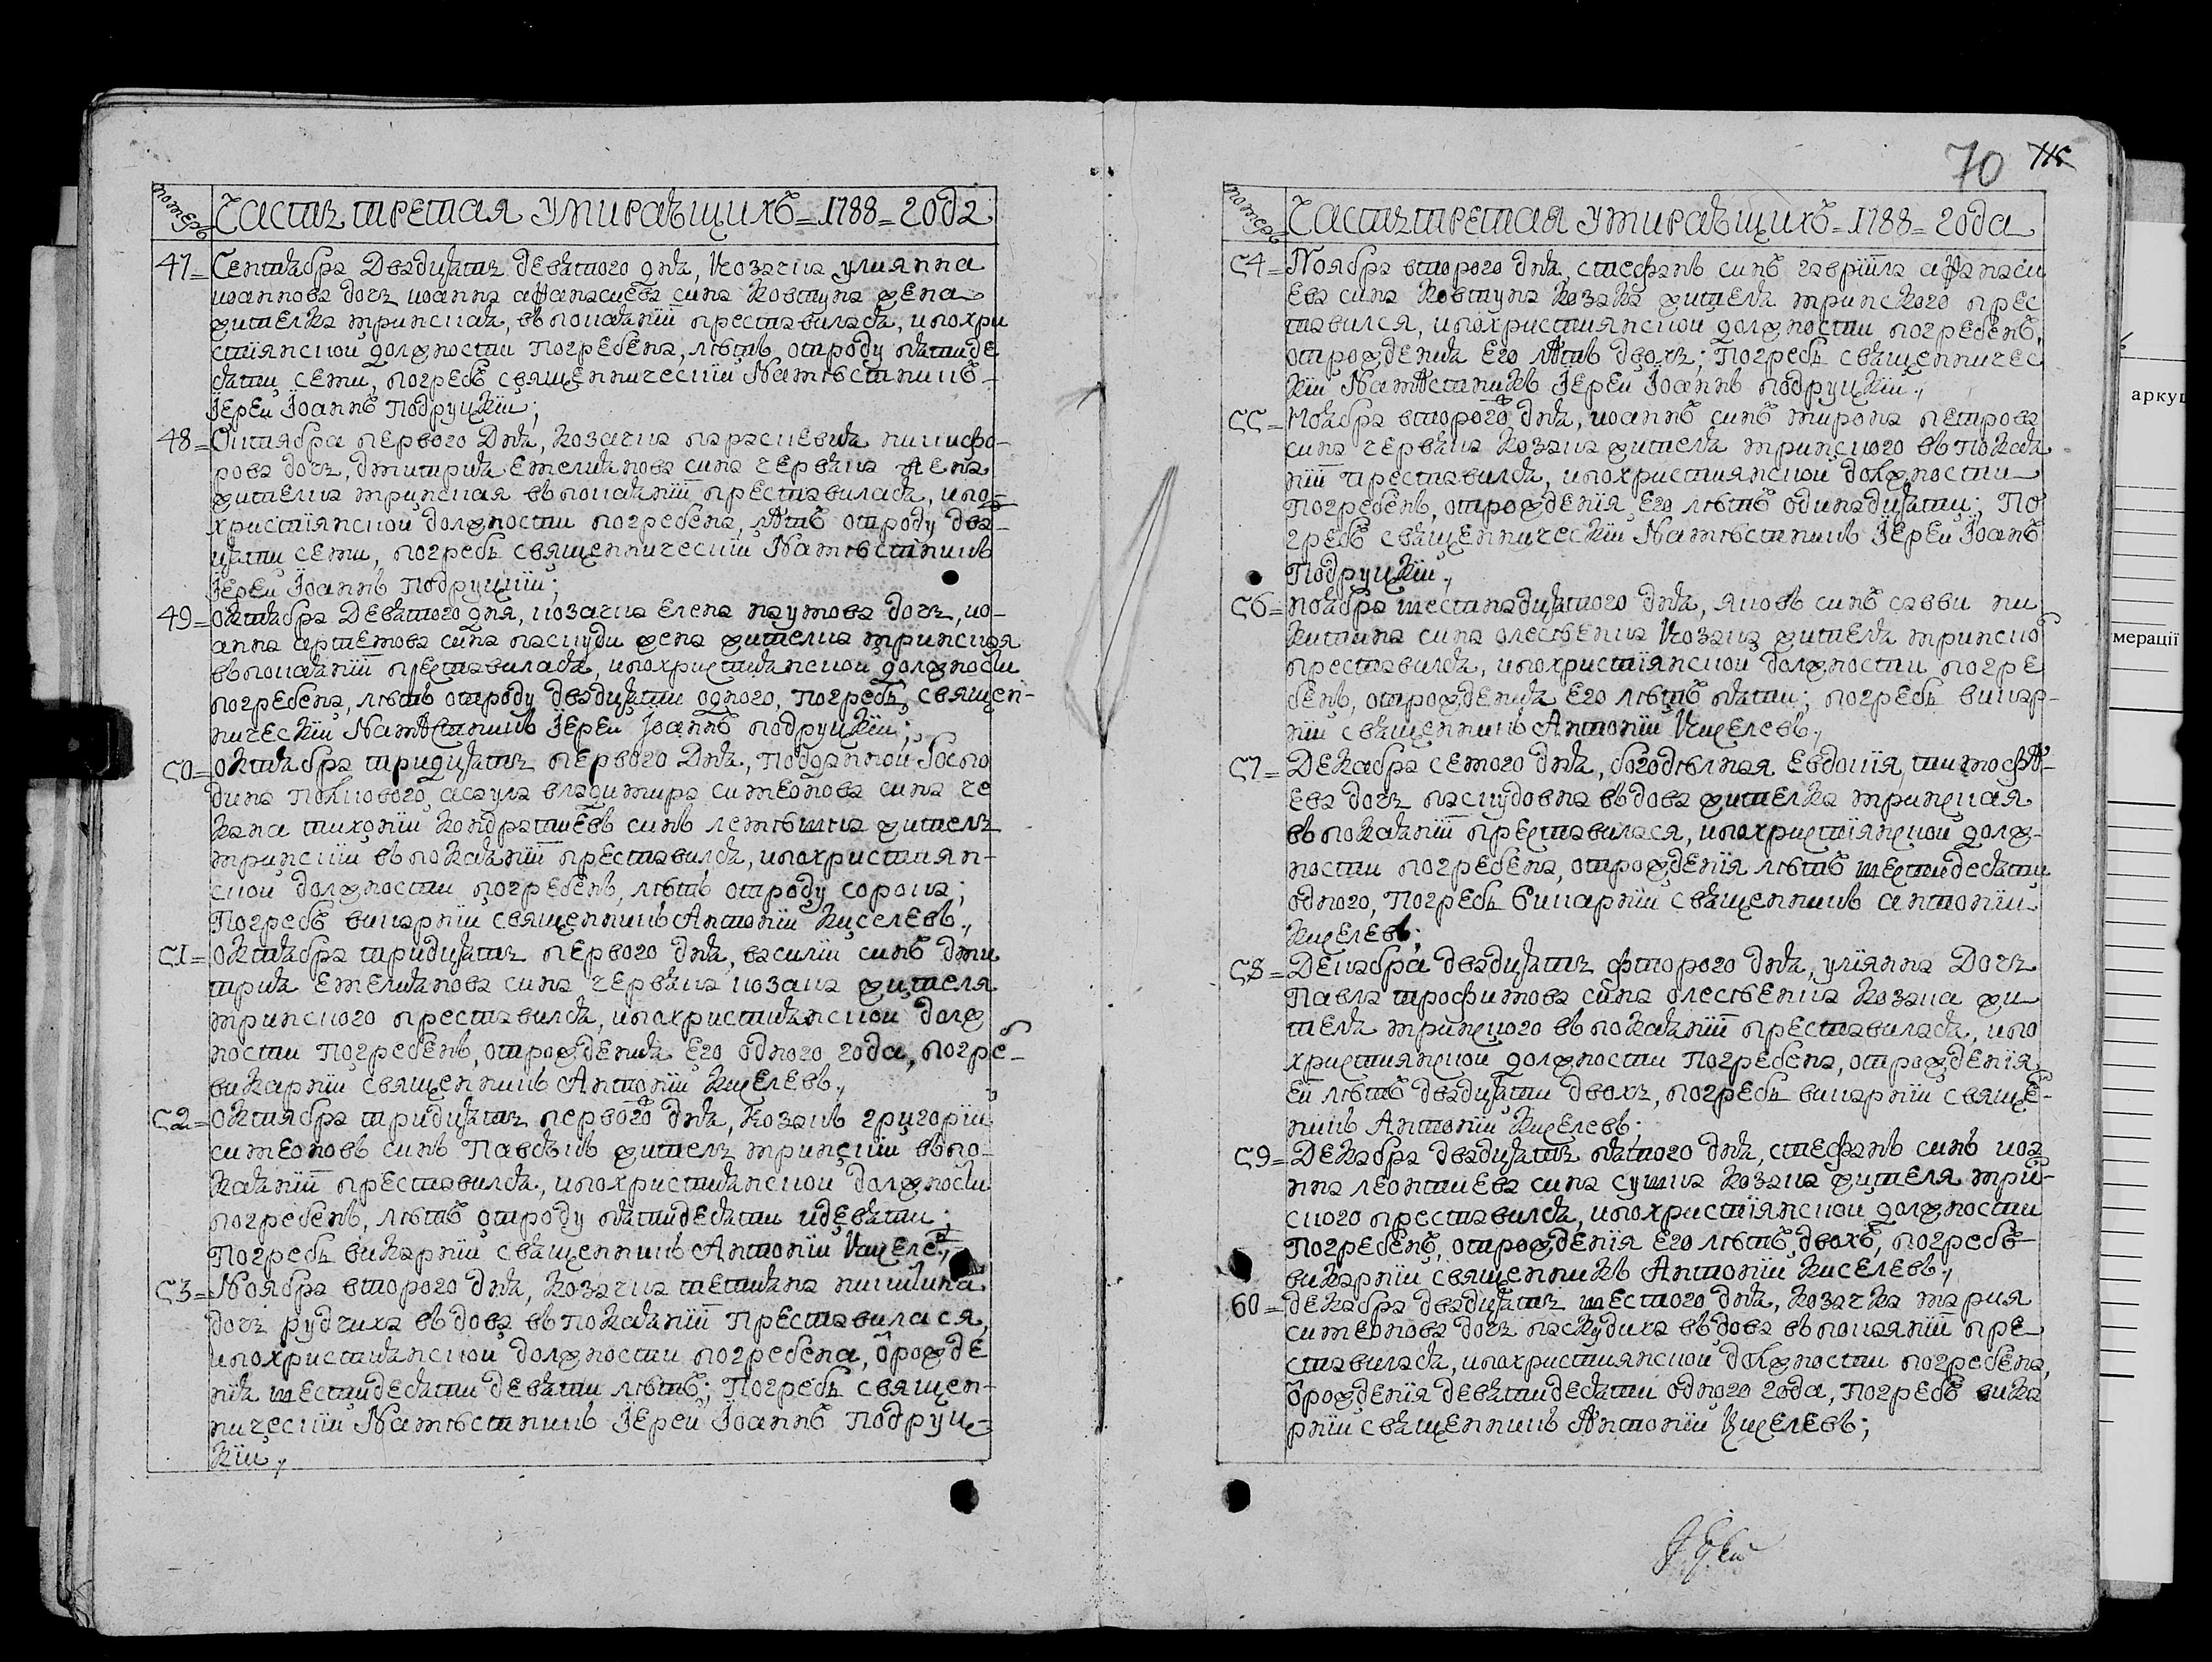 номеръ
Часть третая умирающихъ = 1788 = года
47 = Сентября двадцять девятого дня, козачка улиянна
иоаннова дочь иоанна афанасиева сина ковтуна жена
жителка мринская, въ покаянїи преставилася, и по хри
стиянской должности погребена, лѣтъ отроду пятиде
сяти семи, погребъ священническїи Намѣстникъ
Їереи Їоаннъ Подруцкїи;
48 = Октября первого дня, козачка параскевия никифо-
рова дочь, дмитрия емелянова сина червяка жена
жителка мринская въ покаянїи преставилася, и по
християнской должности погребена, лѣтъ отроду два-
цяти семи, погребъ священническїи Намѣстникъ
Їереи Їоаннъ Подруцкїи;
49 = октября девятого дня, козачка елена наумова дочь, ио-
анна артемова сина паскуди жена жителка мринская
въ покаянїи преставилася, и по християнской должности
погребена, лѣтъ отроду двадцяти одного, погребъ священ-
ническїи Намѣстникъ Їереи Їоаннъ подруцкїи;
50 = октября тридцять первого дня, подданной госпо
дина полкового асаула владимира симеонова сина че
кана тихонїи кондратиевъ синъ лемѣшка житель
мринскїи въ покаянїи преставился, и по християн-
ской должности погребенъ, лѣтъ отроду сорока;
Погребъ викарнїи священникъ Антонїи Киселевъ.,
51 = октября тридцять первого дня, василїи синъ дми
трия емелянова сина червяка козака жителя
мринского преставился, и по християнской долж
ности погребенъ, отрождения его одного года, погре-
викарнїи священникъ Антонїи Киселевъ.,
52 = октября тридцять первого дня, козакъ григорїи
симеоновъ синъ Павсѣкъ житель мринскїи въ по-
каянїи преставился, и по християнской должности
погребенъ, лѣтъ отроду пятидесяти и девяти;
Погребъ викарнїи священникъ Антонїи Киселев.,
53 = Ноября второго дня, козачка
дочь рудчиха вдова въ покаянїи преставилася,
и по християнской должности погребена, о рожде
ния шестидесяти девяти лѣтъ; Погребъ священ-
ническїи Намѣстникъ Їереи Їоаннъ Подруц-
кїи.,
70
номеръ
Часть третая умирающихъ = 1788 = года
54 = Ноября второго дня, стефанъ синъ гаврїила афанаси
ева сина ковтуна козака жителя мринского прес
тавился, и по християнской должности погребенъ,
отрождения его лѣтъ двохъ; Погребъ священничес
кїи Намѣстникъ Їереи Їоаннъ подруцкїи.,
55 = Ноября второго дня, иоаннъ синъ мирона петрова
сина червяка козака жителя мринского въ покая
нїи преставился, и по християнской должности
погребенъ, отрожденїя его лѣтъ одинадцяти; По
гребъ священническїи Намѣстникъ Їереи Їоанъ
Подруцкїи.,
56 = ноября шестнадцятого дня, яковъ синъ савви ни
китина сина олесѣенка козака жителя мринско
преставился, и по христїянской должности погре
бенъ, отрождения его лѣтъ пяти; погребъ викар-
нїи священникъ Антонїи Киселевъ.,
57 = Декабря семого дня, богодѣлная Евдокїя, тимофѣ-
ева дочь паскудовна вдова жителка мринская
въ покаянїи преставилася, и по христїянской долж-
ности погребена, отрожденїя лѣтъ шестидесяти
одного, Погребъ викарнїи священникъ антонїи
Киселевъ;
58 = Декабря двадцять фторого дня, улїянна дочь
Павла трофимова сина олесѣенка козака жи
теля мринского въ покаянїи преставилася, и по
християнской должности погребена, отрожденїя
еи лѣтъ двадцяти двохъ, погребъ викарнїи свяще-
никъ Антонїи Киселевъ;
59 = Декабря двадцять пятого дня, стефанъ синъ иоа
нна леонтиева сина сушка козака жителя мрин-
ского преставился, и по христїянской должности
погребенъ, отрожденїя его лѣтъ двохъ, погребъ
викарнїи священникъ Антонїи Киселевъ.,
60 = декабря двадцять шестого дня, козачка мария
симеонова дочь паскудиха вдова въ покаянїи пре-
ставилася, и по християнской должности погребена,
о рожденїя девятидесяти одного года, погребъ вика
рнїи священникъ Антонїи Киселевъ;
аркуш
мерації